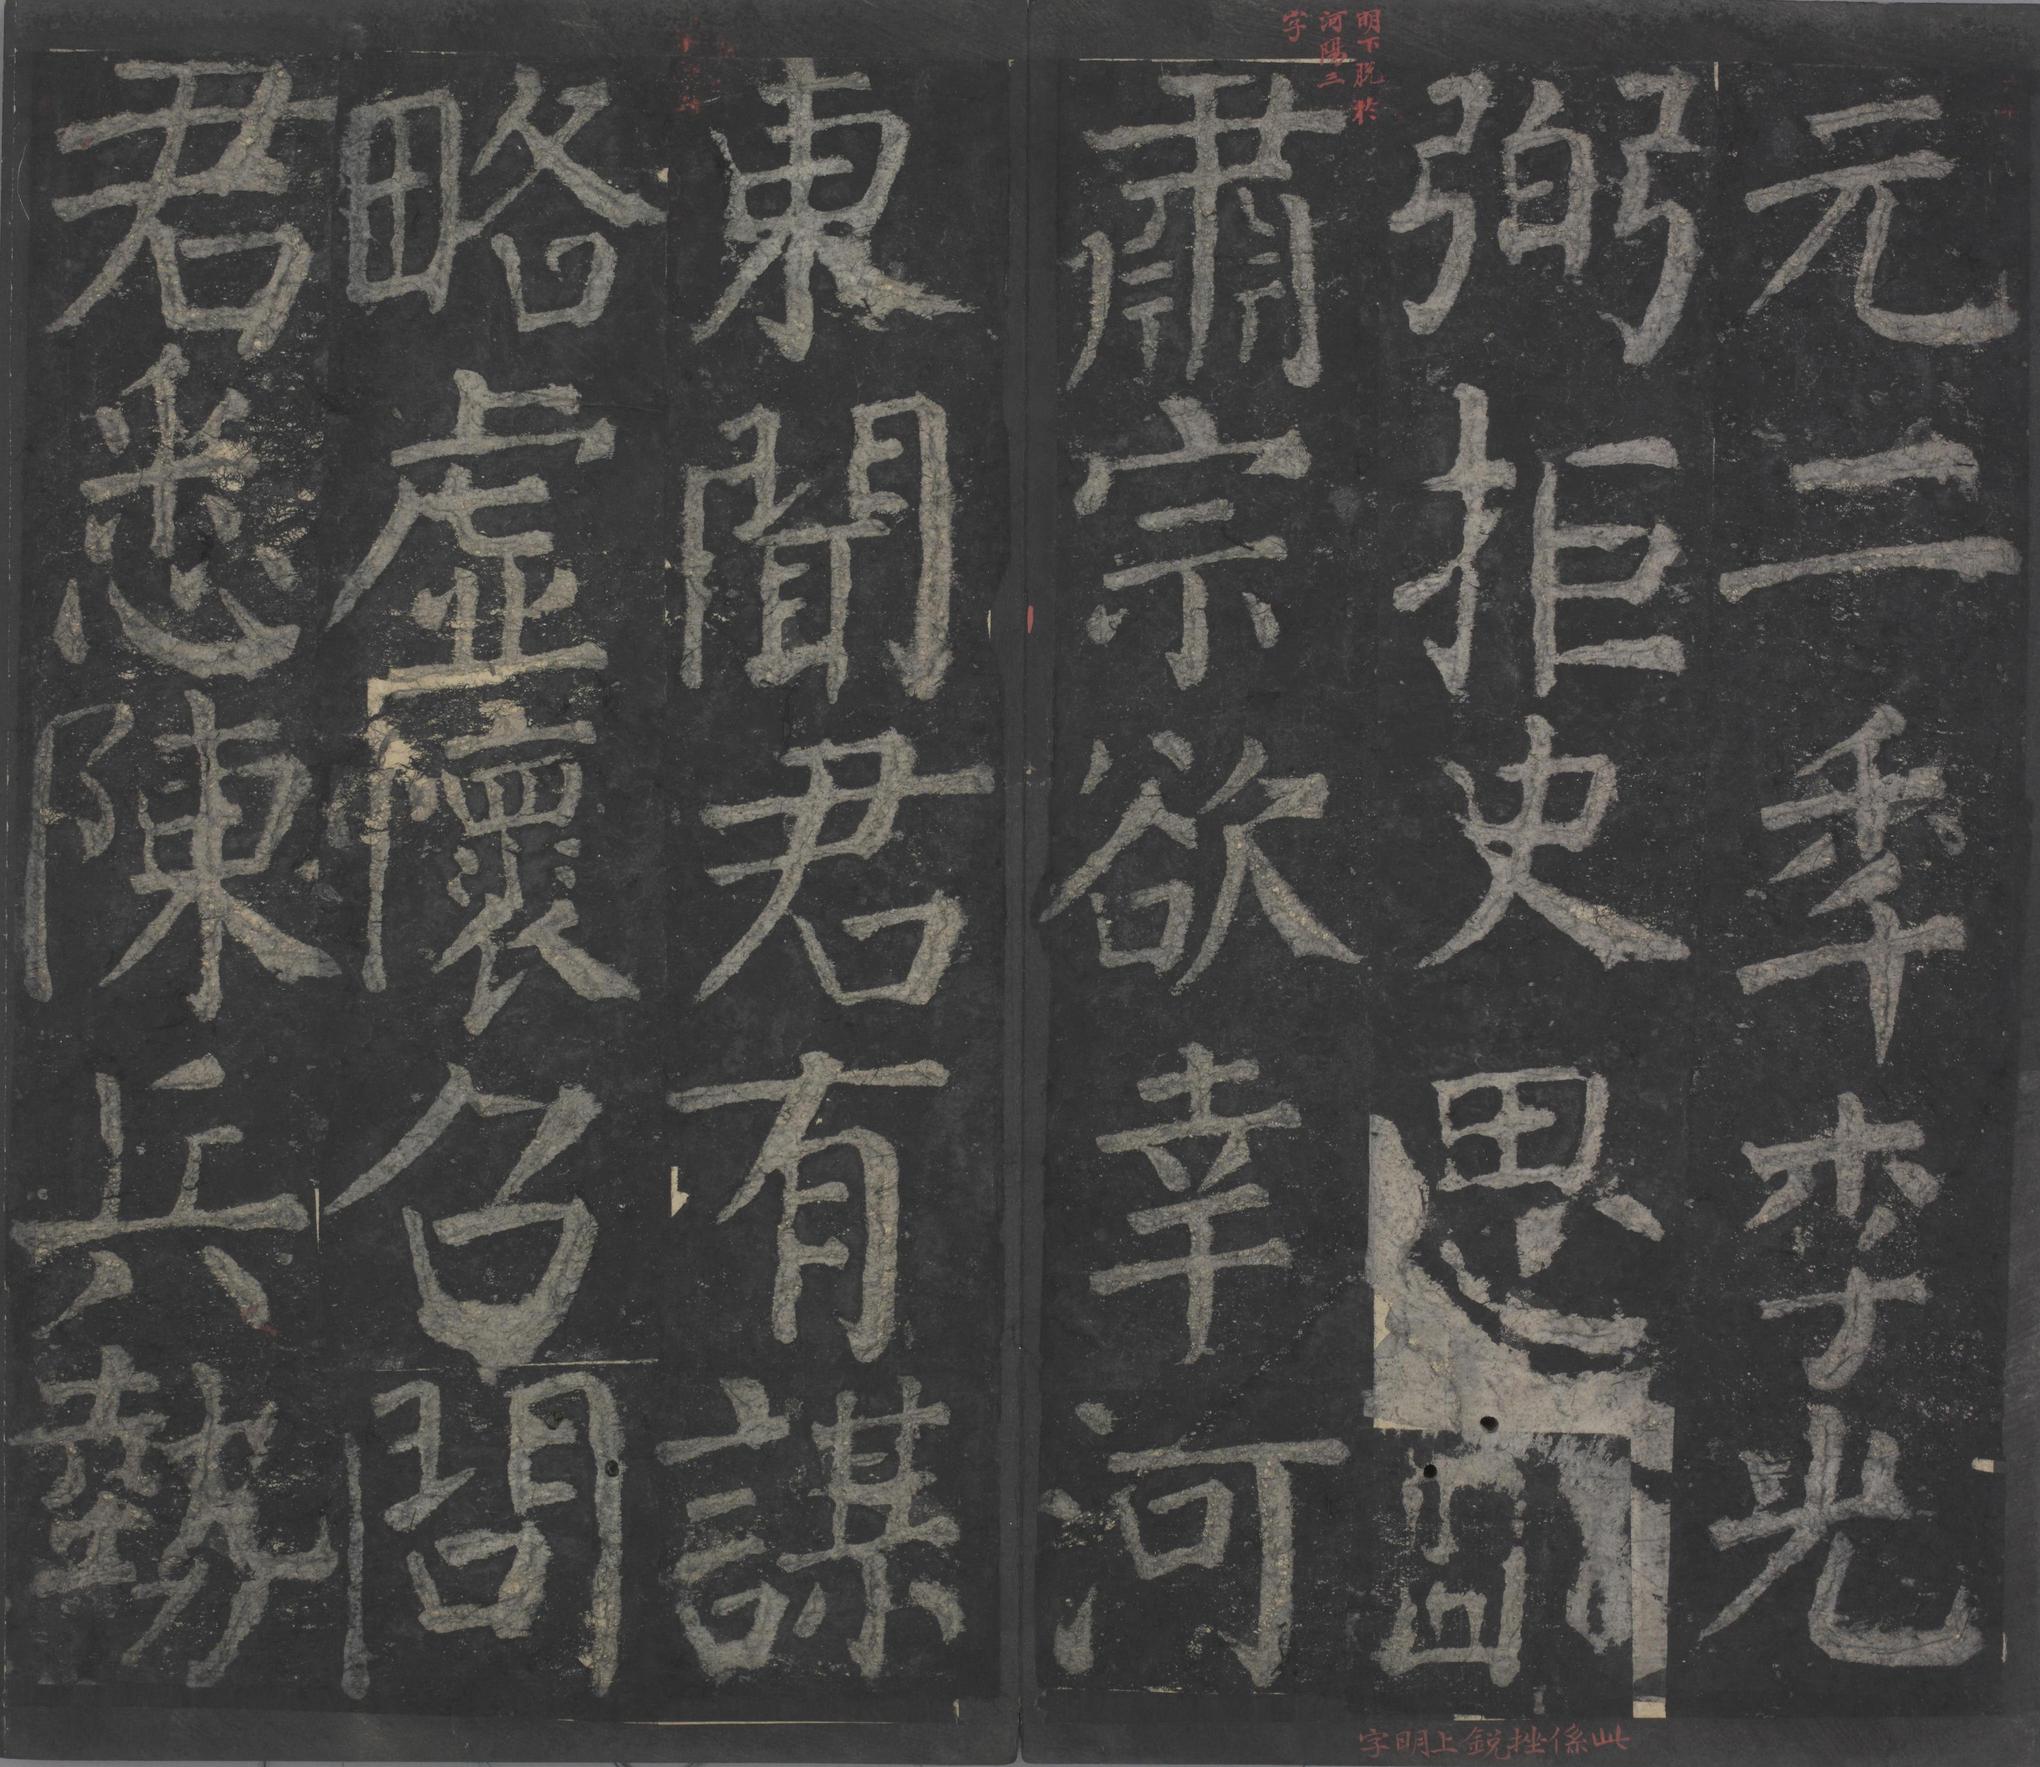 元二秊李光
弼拒史思明
肅宗欲幸河
東聞君有謀
略虛懷召問
君悉陳兵勢
明下脫於
河陽三
字
此係挫銳上明字